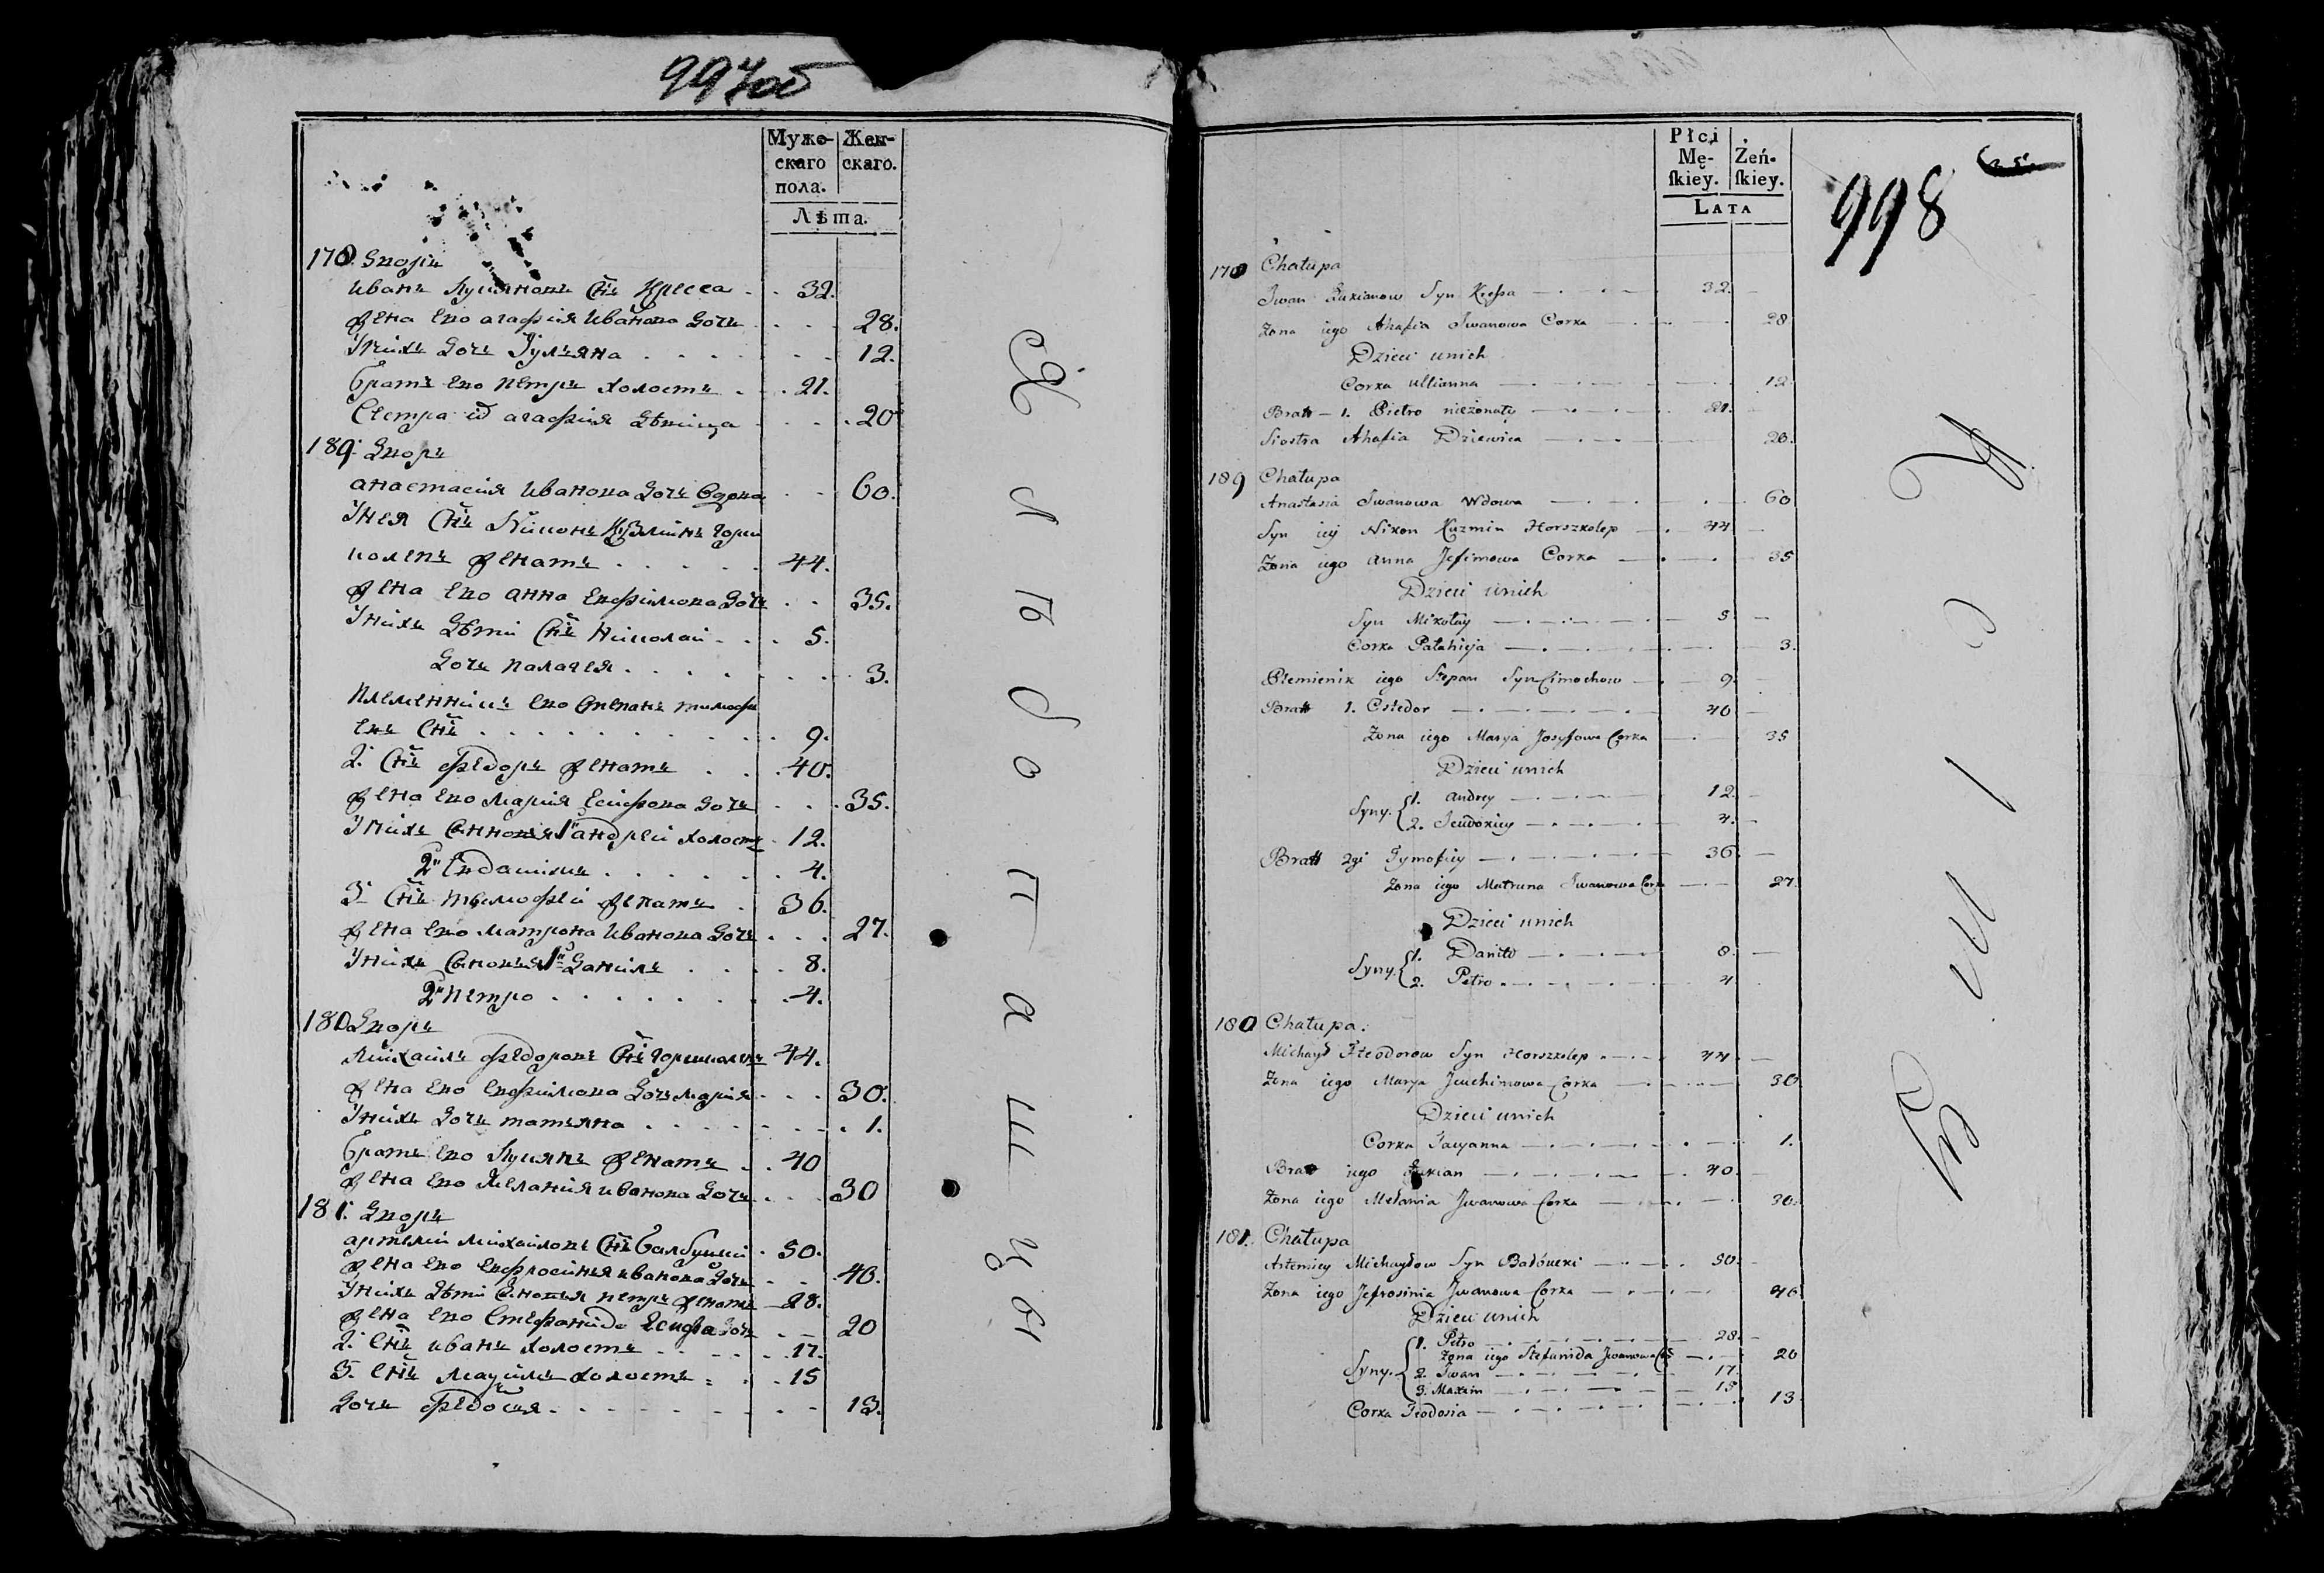 997об
Мужескаго пола.
Женскаго.
Лѣта.
178. Дворъ
Иванъ Лукяновъ Снъ Кресса 32.
Жена Ево Агафия Иванова Дочь 28.
У нихъ Дочь Гулияна 12.
Братъ Ево Петръ Холостъ 21.
Сестра Агафия Дѣвица 20
189. Дворъ
Анастасия Иванова Дочь Вдова 60.
У нея Снъ Никонъ Кузминъ Горш
колепъ Женатъ 44.
Жена Ево Анна Евфимова Дочь 35.
У нихъ Дѣти Снъ Николай 5.
Дочь Палагея 3.
Племянникъ Ево Степанъ Тимофе
евъ Снъ 9.
2. Снъ Федоръ Женатъ 40.
Жена Ево Мария Есифова Дочь 35.
У нихъ Сыновья 1й Андрей Холостъ 12.
2й Евдакимъ 4.
3. Снъ Тимофей Женатъ 36.
Жена Ево Матрона Иванова Дочь 27.
У нихъ Сыновья 1й Данилъ 8.
2й Петро 4.
180 Дворъ
Михаилъ Федоровъ Снъ Горшколепъ 44.
Жена Ево Евфимова Дочь Мария 30.
У нихъ Дочь Татьяна 1.
Братъ Ево Лукянъ Женатъ 40
Жена Ево Мелания Иванова Дочь 30
181. Дворъ
Артемий Михайловъ Снъ 50.
Жена Ево Евфросиния Иванова Дочь 40.
У нихъ Дѣти Сыновья Петръ Женатъ 28.
Жена Ево Стефанида Дочь 20
2. Снъ Иванъ Холостъ 17.
3. Снъ Максимъ Холостъ 15
Дочь Федосия 13.
Хлѣбопашцы
998
Płci Męſkiey.
Żeńſkiey.
LATA
178 Chałupa
Iwan Łukianow Syn Kressa 32.
Żona iego Ahafia Iwanowa Corka 28
Dzieci unich
Corka Ullianna 12.
Bratt 1. Pietro nieżonaty 21.
Siostra Ahafia Dziewica 20.
189 Chałupa
Anastasia Iwanowa Wdowa 60
Syn iey Nikon Kuzmin Horszkolep 44
Żona iego Anna Jefimowa Corka 35
Dzieci unich
Syn Mikołay 5
Corka Pałahieja 3.
Plemienik iego Stepan Syn Cimochow 9.
Bratt 1. Cħedor 40
Żona iego Marya Josyfowa Corka 35
Dzieci unich
Syny. 1. Andrey 12.
2. Jewdokiey 4.
Bratt 2gi Tymofiey 36.
Żona iego Matruna Iwanowa Corka 27.
Dzieci unich
Syny. 1. Daniło 8.
2. Petro 4
180 Chałupa.
Michaył Fteodorow Syn Horszkolep 44
Żona iego Marya Jeuchimowa Corka 30
Dzieci unich
Corka Tacyanna 1.
Bratt iego Łukian 40.
Żona iego Mełania Iwanowa Corka 30.
181. Chałupa
Artemiey Michayłow Syn 50.
Żona iego Jefrosinia Iwanowa Corka 46
Dzieci unich
Syny. 1. Petro 28.
Żona iego Stefanida Iwanowa 20
2. Iwan 17.
3. Maxim 15
Corka Teodosia 13.